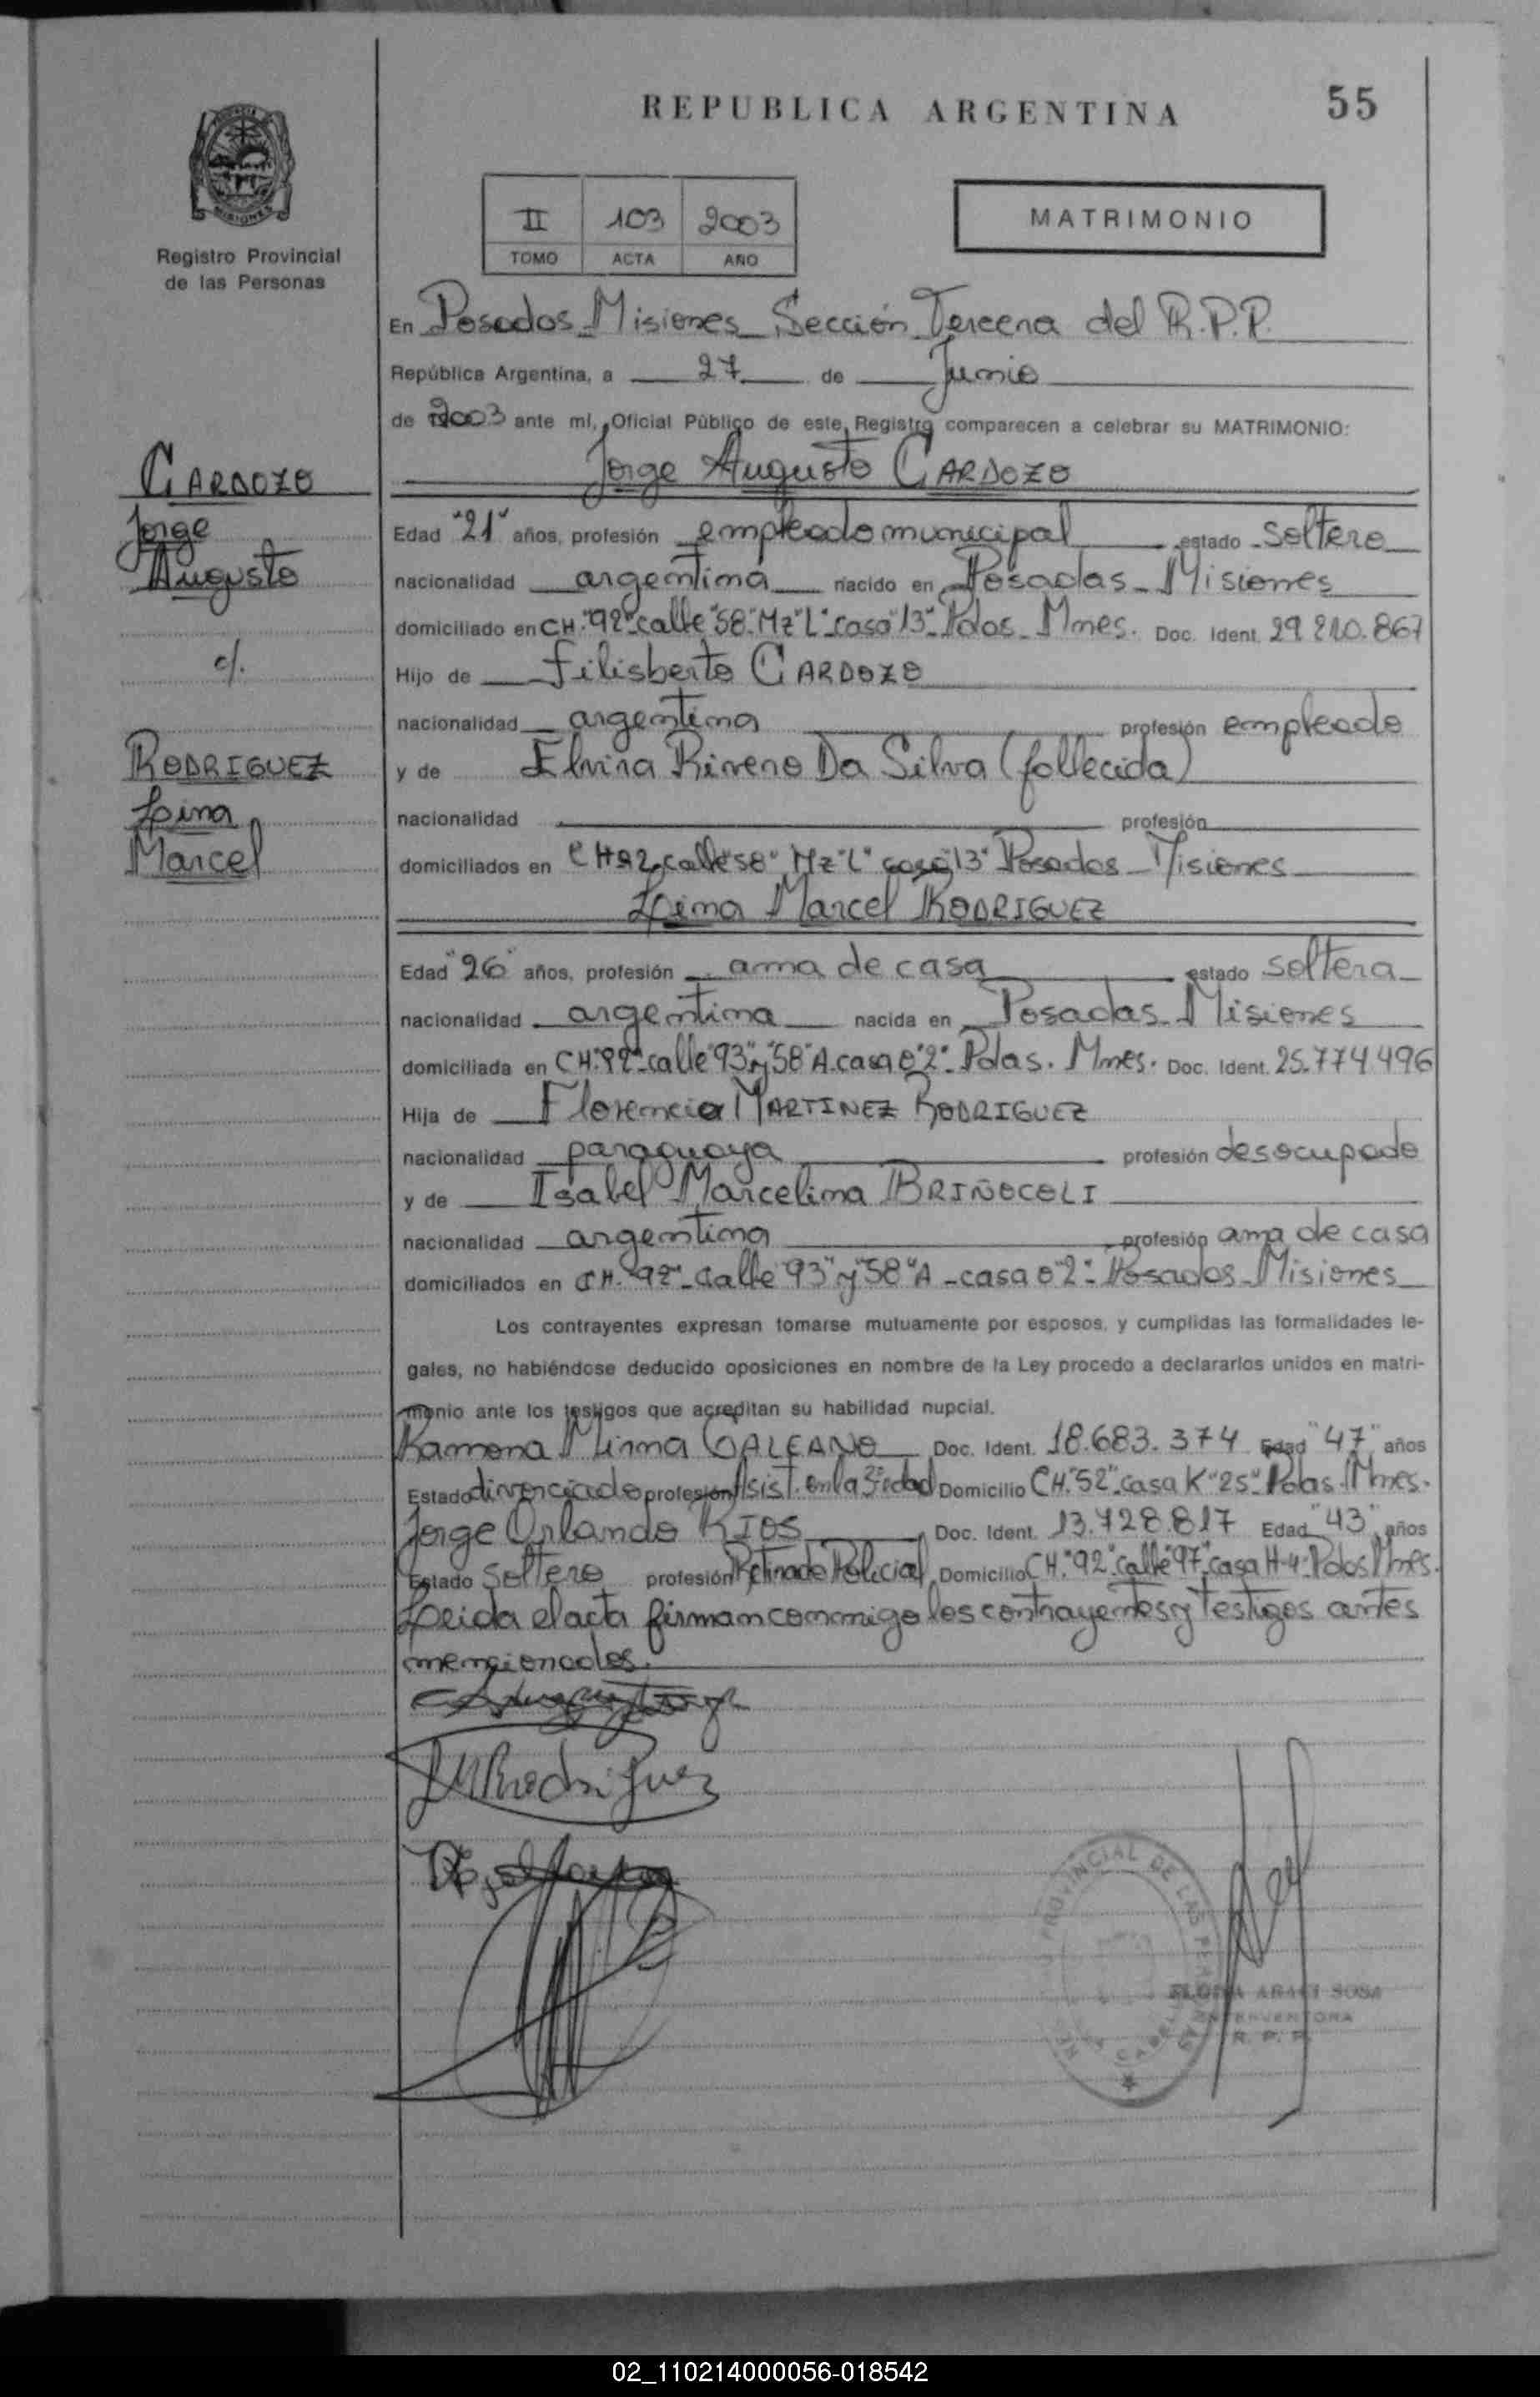 REPUBLICA ARGENTINA
55
II 103 2003
TOMO ACTA AÑO
MATRIMONIO
Registro Provincial
de las Personas
En Posadas Misiones Sección Tercera del R.P.P.
República Argentina, a 27 de Junio
de 2003 ante mí, Oficial Público de este Registro comparecen a celebrar su MATRIMONIO:
Jorge Augusto CARDOZO
CARDOZO
Jorge
Augusto
c/.
RODRIGUEZ
Lina
Marcel
Edad "21" años, profesión empleado municipal estado soltero
nacionalidad argentina nacido en Posadas - Misiones
domiciliado en CH. "92" calle "58" Mz "L" casa "13" Pdas. Mnes. Doc. Ident. 29.210.867
Hijo de Filisberto CARDOZO
nacionalidad argentina profesión empleado
y de Elvira Riveno Da Silva (fallecida)
nacionalidad profesión
domiciliados en CH 92 calle "58" Mz "L" casa 13" Posadas - Misiones
Lina Marcel RODRIGUEZ
Edad "26" años, profesión ama de casa estado soltera
nacionalidad argentina nacida en Posadas - Misiones
domiciliada en CH. "92" calle "93" y "58" A casa 0 "2" Pdas. Mnes. Doc. Ident. 25.774.496
Hija de Florencia MARTINEZ RODRIGUEZ
nacionalidad paraguaya profesión desocupado
y de Isabel Marcelina BRIÑOCOLI
nacionalidad argentina profesión ama de casa
domiciliados en CH. "92" - Calle "93" y "58" A - casa 0 "2" - Posadas - Misiones
Los contrayentes expresan tomarse mutuamente por esposos, y cumplidas las formalidades le-
gales, no habiéndose deducido oposiciones en nombre de la Ley procedo a declararlos unidos en matri-
monio ante los testigos que acreditan su habilidad nupcial.
Ramona Mirna GALEANO Doc. Ident. 18.683.374 Edad "47" años
Estado divorciado profesión Asist. en la 3ª edad Domicilio CH. "52" casa K "25" Pdas. Mnes.
Jorge Orlando RIOS Doc. Ident. 13.728.817 Edad "43" años
Estado soltero profesión Retirado Policial Domicilio CH. "92" calle "97" casa H-4 - Pdas Mnes.
Leida el acta firman conmigo los contrayentes y testigos antes
mencionados.
LMRodriguez
PROVINCIAL DE LAS PER
FLORA ARACI SOSA
INTERVENTORA
R. P. P.
02_110214000056-018542